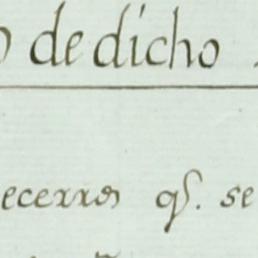 de dicho
ecerros qͤ. se